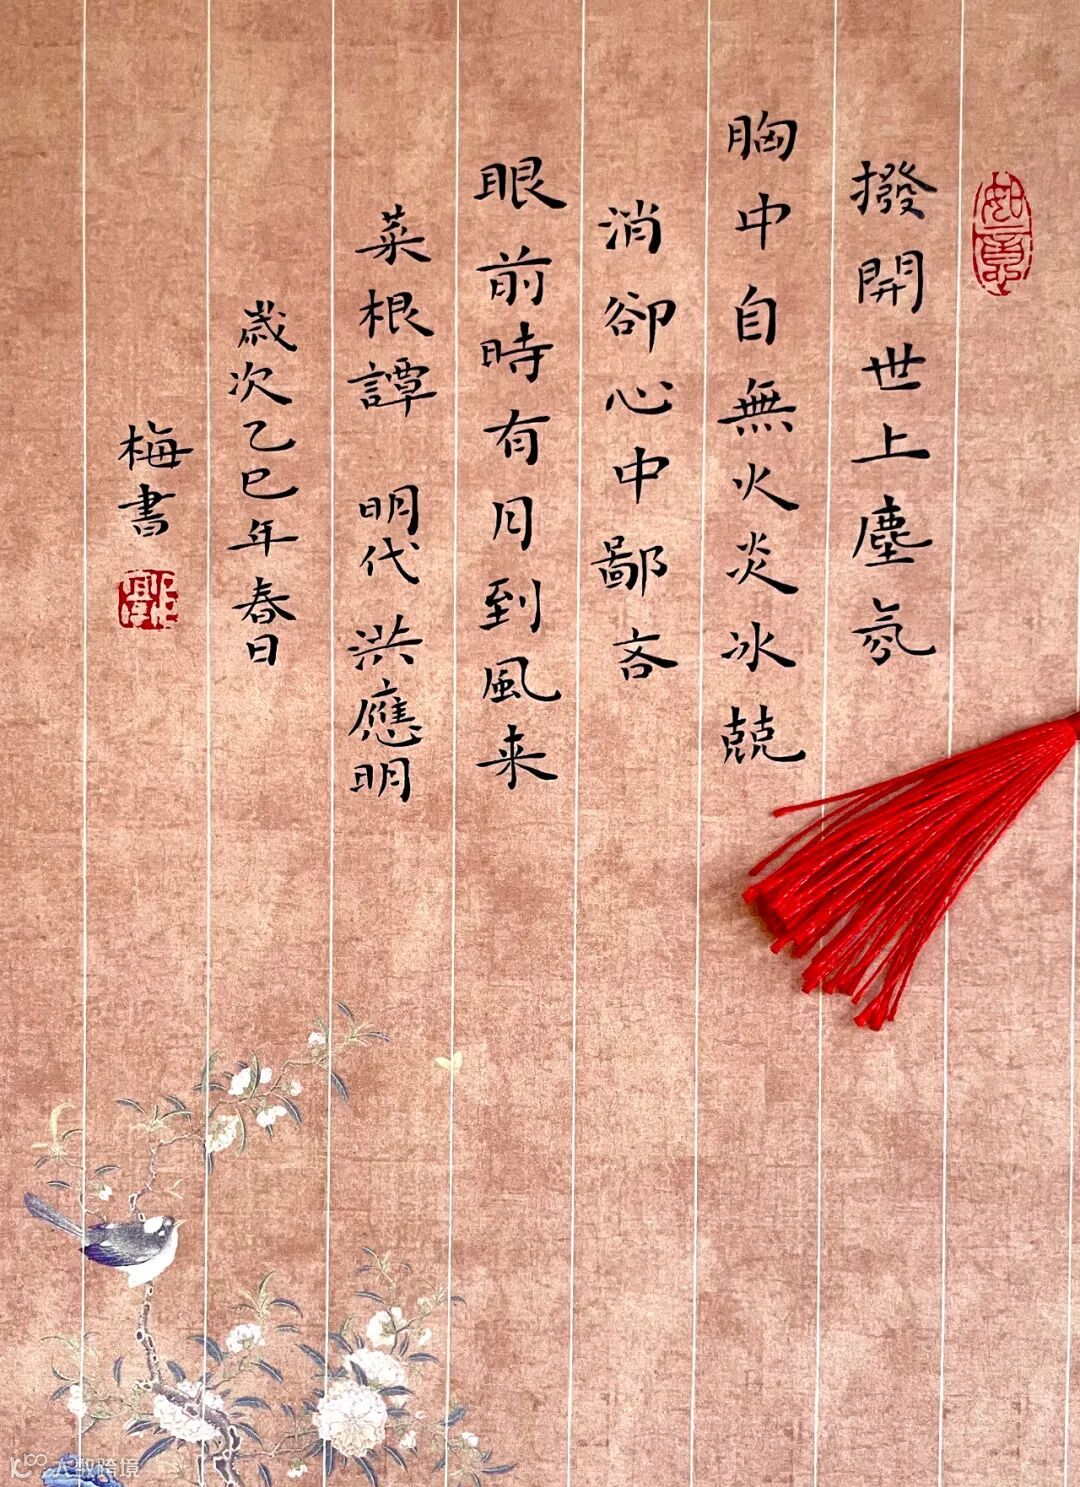 如意
撥開世上塵氛
胸中自無火炎冰兢
消卻心中鄙吝
眼前時有月到風来
菜根譚 明代 洪應明
歲次乙巳年春日
梅書
大数跨境